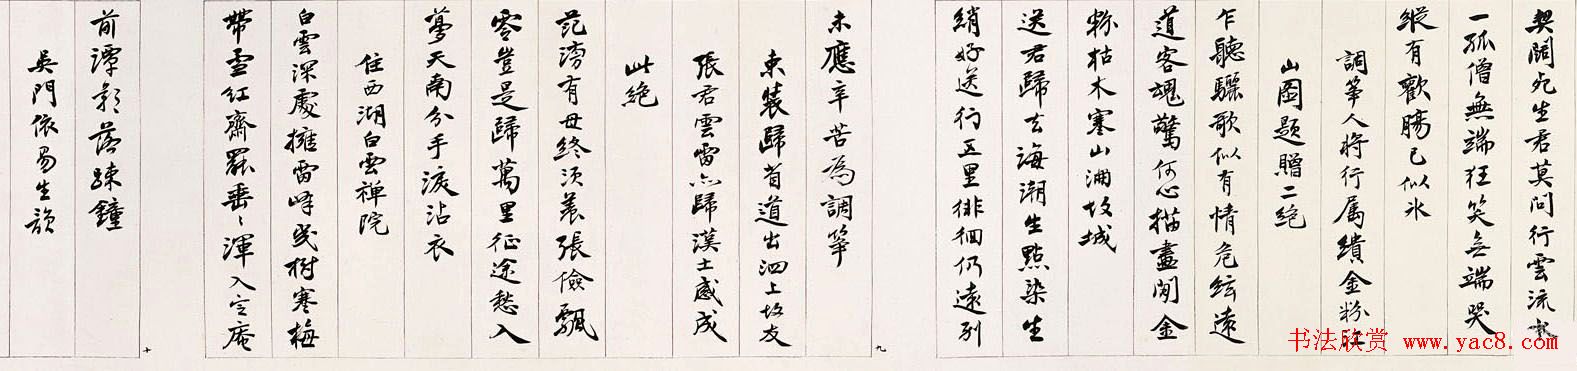 契闊死生君莫問行雲流水
一孤僧無端狂笑無端哭
縱有歡腸已似冰
調箏人將行属繢金粉江
山圖題贈二絕
乍聽驪歌似有情危絃遠
道客魂驚何心描畫閒金
粉枯木寒山滿故城
送君歸去海潮生點染生
綃好送行五里徘徊仍遠別
未應辛苦為調箏
九
束裝歸省道出泗上故友
張君雲雷亦歸漢土感成
此絕
范滂有母終須養張儉飄
零豈是歸萬里征途愁入
夢天南分手淚沾衣
住西湖白雲禪院
白雲深處擁雷峰幾樹寒梅
帶雪紅齋罷垂〻渾入定庵
十
前潭影落疎鐘
吳門依易生韻
书法欣赏 www.yac8.com